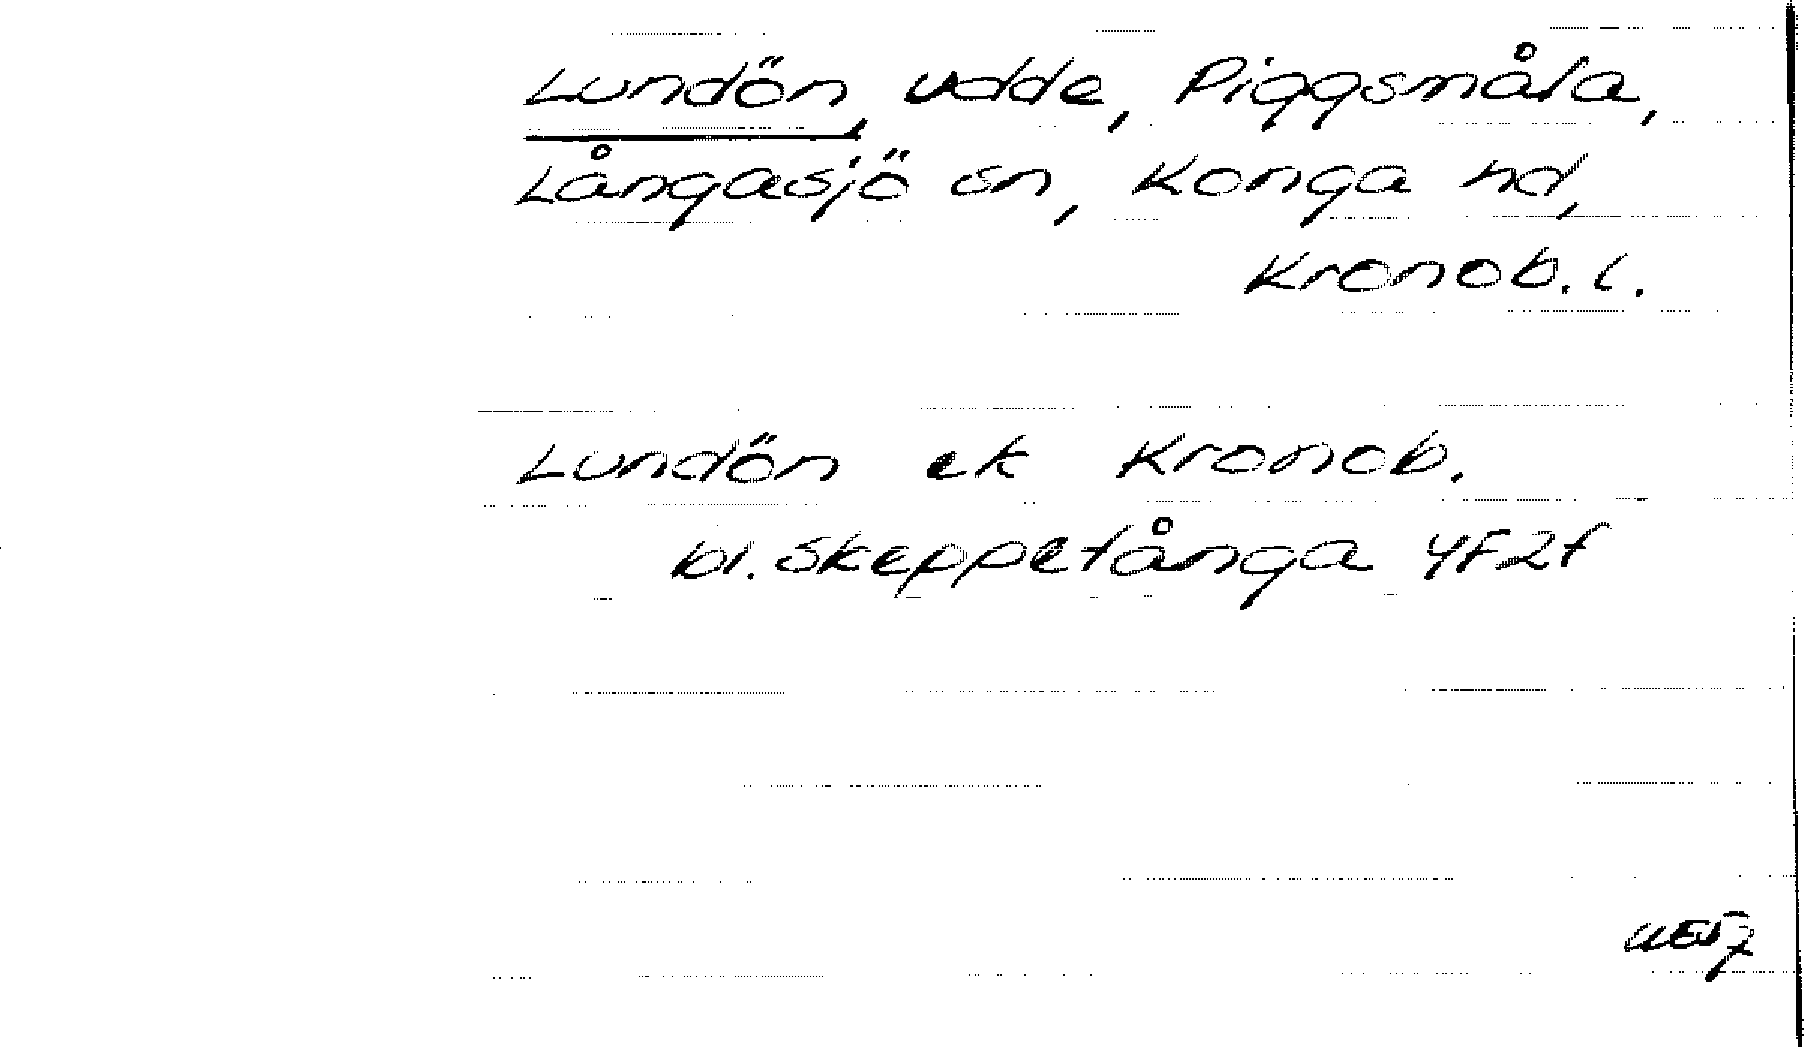 Lundön, udde, Piggsmåla,
Långasjö sn, Konga hd,
Kronob. l.
Lundön ek Kronob.
bl. Skeppetånga 4F2f